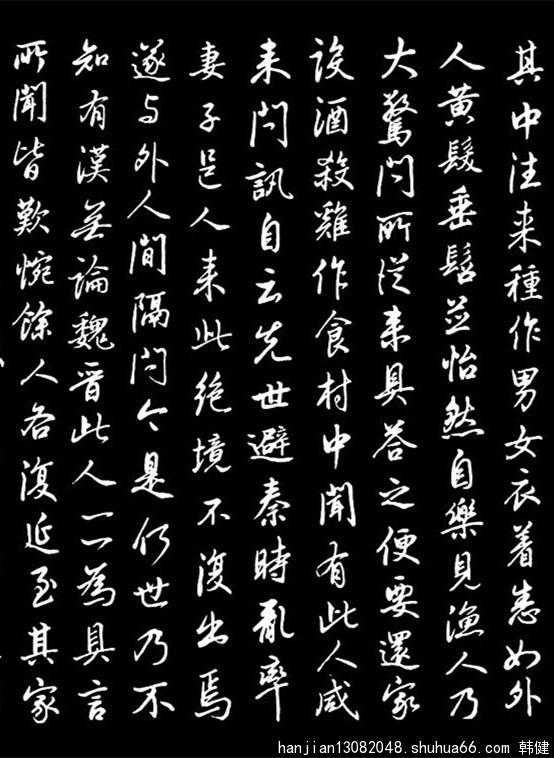 其中往来種作男女衣着悉如外
人黄髮垂髫並怡然自樂見漁人乃
大驚問所從来具答之便要還家
設酒殺雞作食村中聞有此人咸
来問訊自云先世避秦時亂率
妻子邑人来此絶境不復出焉
遂与外人間隔問今是何世乃不
知有漢無論魏晋此人一一為具言
所聞皆歎惋餘人各復延至其家
hanjian13082048.shuhua66.com 韩健